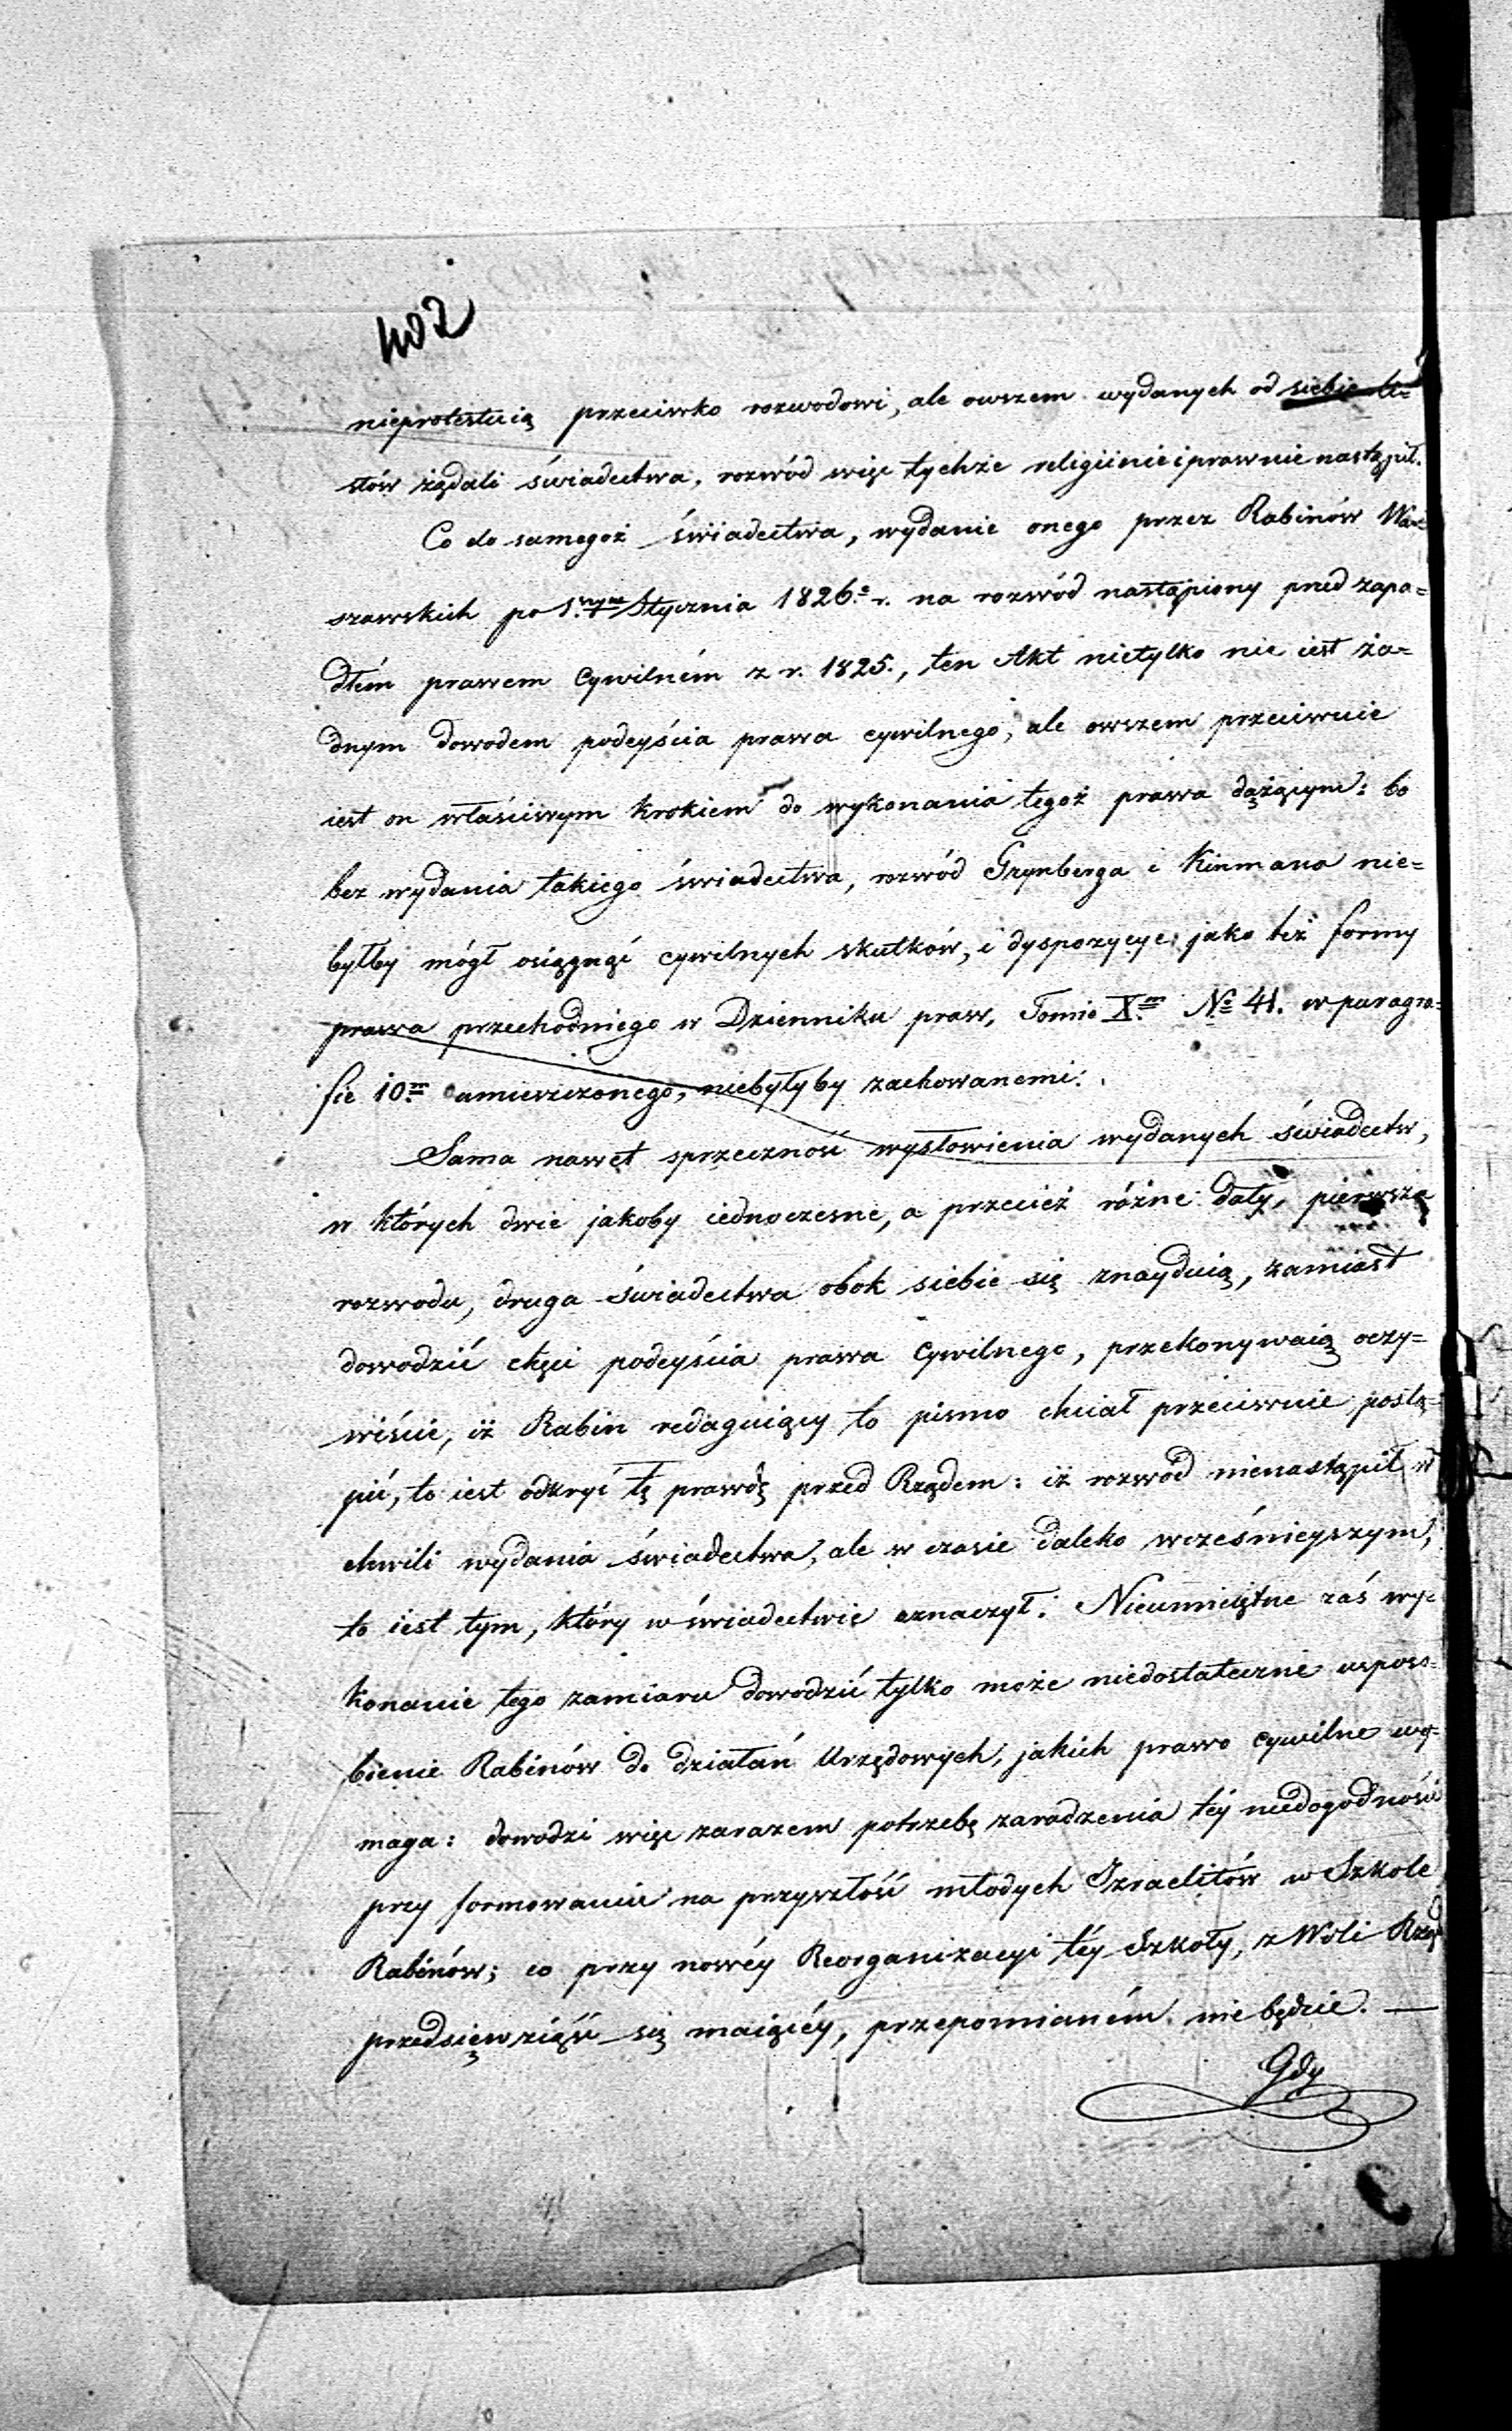 402
nieprotestuią przeciwko rozwodowi, ale owszem wydanych od siebie li=
stów żądali świadectwa, rozwód więc tychże religiinie i prawnie nastąpił.
Co do samegoż świadectwa, wydanie onego przez Rabinów War=
szawskich po 1.nym Stycznia 1826.o r. na rozwód nastąpiony pned zapa=
dłém prawem Cywilném z r. 1825., ten Akt nietylko nie iest ża=
dnym dowodem podeyścia prawa cywilnego, ale owszem przeciwnie
iest on właściwym krokiem do wykonania tegoż prawa dążącym: bo
bez wydania takiego świadectwa, rozwód Grynberga i Kinmana nie=
byłby mógł osiągnąć cywilnych skutków, i dyspozycye jako też formy
prawa przechodniego w Dzienniku praw, Tomie X.m No 41. w paragra=
fie 10.m umieszczonego, niebyłyby zachowanemi.
Sama nawet sprzeczność wysłowienia wydanych świadectw,
w których dwie jakoby iednoczesne, a przecież różne daty, pierwsza
rozwodu, druga świadectwa obok siebie się znayduią, zamiast
dowodzić chęci podeyścia prawa Cywilnego, przekonywaią oczy=
wiście, iż Rabin redaguiący to pismo chciał przeciwnie postą=
pić, to iest odkryć tę prawdę przed Rządem: iż rozwód nienastąpił w
chwili wydania świadectwa, ale w czasie daleko wcześnieyszym,
to iest tym, który w świadectwie oznaczył. Nieumieiętne zaś wy=
konanie tego zamiaru dowodzić tylko może niedostateczne usposo=
bienie Rabinów do działań Urzędowych, jakich prawo cywilne wy=
maga: dowodzi więc zarazem potrzebę zaradzenia téy niedogodności
przy formowaniu na przyszłość młodych Izraelitów w Szkole
Rabinów; co przy nowéy Reorganizacyi téy Szkoły, z Woli Rządu
przedsięwziąść się maiącéy, przepomnianém nie będzie. —
Gdy